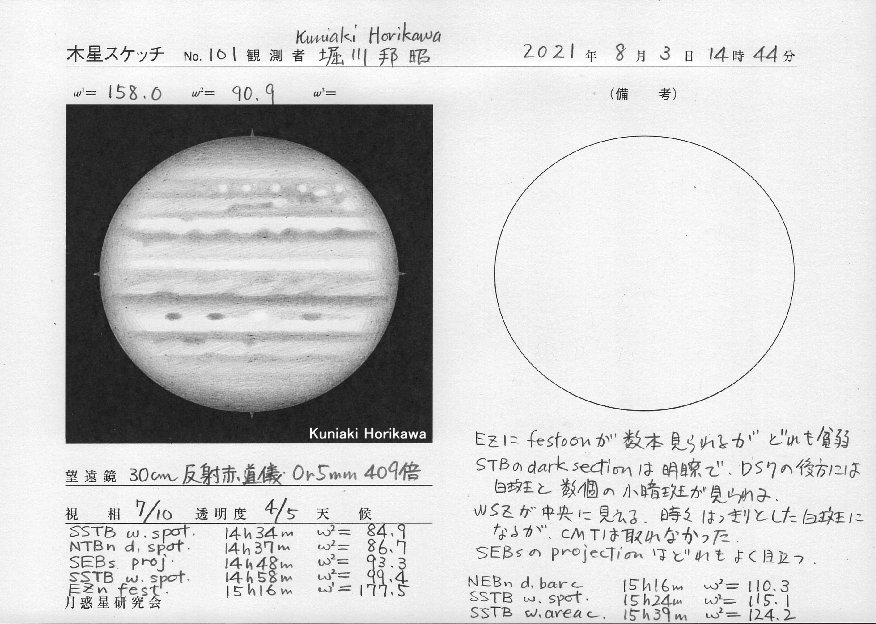 Kuniaki Horikawa
木星スケッチ No. 101 観測者 堀川邦昭 2021年 8月 3日 14時 44分
ω¹= 158.0 ω²= 90.9 ω³=
(備 考)
Kuniaki Horikawa
EZに festoonが 数本 見られるが どれも 貧弱
STBのdark sectionは 明瞭で、DS7の後方には
白斑と 数個の 小暗斑が見られる.
WSZが中央に見える. 時々 はっきりとした白斑に
なるが、CMTは取れなかった.
SEBsの projectionはどれもよく目立つ.
望遠鏡 30cm 反射赤道儀 Or5mm 409倍
視 相 7/10 透明度 4/5 天 候
SSTB w. spot. 14h34m ω²= 84.9
NTBn d. spot. 14h37m ω²= 86.7
SEBs proj. 14h48m ω²= 93.3
SSTB w. spot. 14h58m ω²= 99.4
EZn fest. 15h16m ω¹= 177.5
月惑星研究会
NEBn d. bar c. 15h16m ω²= 110.3
SSTB w. spot. 15h24m ω²= 115.1
SSTB w. area c. 15h39m ω²= 124.2